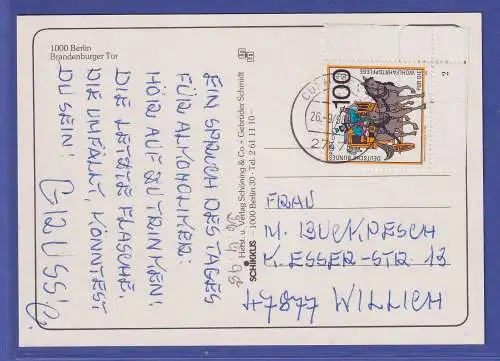 1000 Berlin
Brandenburger Tor
EIN SPRUCH DES TAGES
FÜR ALKOHOLIKER:
HÖR AUF ZU TRINKEN!
DIE LETZTE FLASCHE,
DIE UMFÄLLT, KÖNNTEST
DU SEIN!
GRUSS!
Hberst. u. Verlag Schöning & Co + Gebrüder Schmidt
SCHIKKUS – 1000 Berlin 30 · Tel. 2 61 11 10
100
WOHLFAHRTSPFLEGE
DEUTSCHE BUNDESPOST
2
FRAU
M. BUCKPESCH
K. ESSER-STR. 13
47877 WILLICH